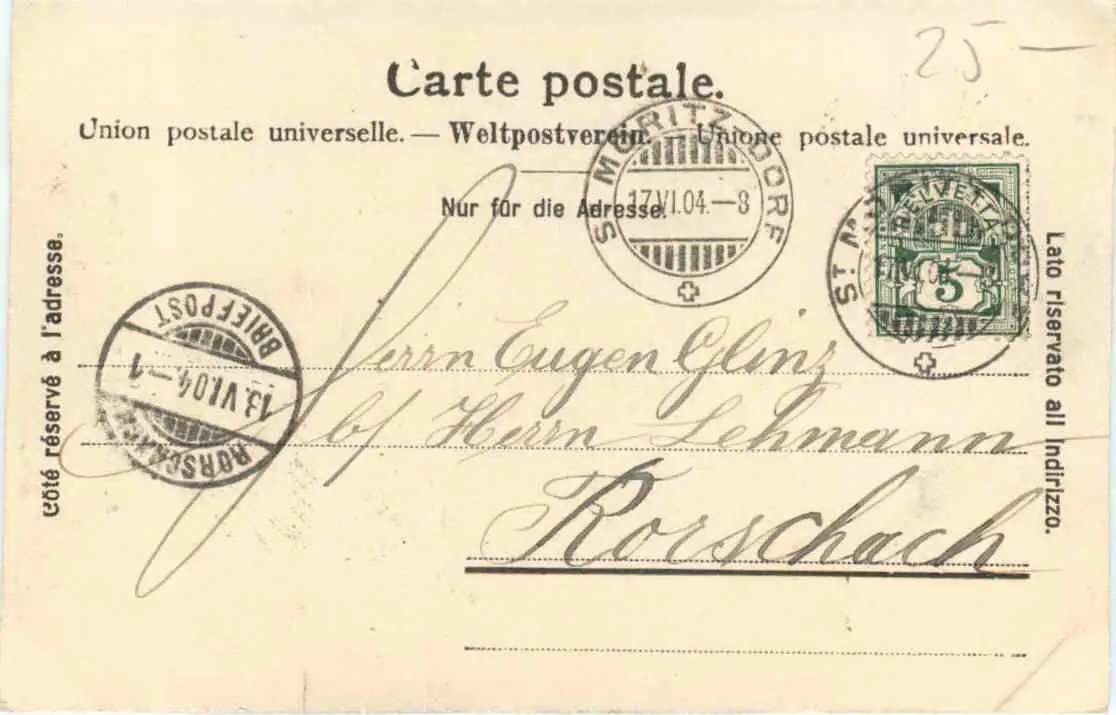 25 —
Carte postale.
Union postale universelle. — Weltpostverein. — Unione postale universale.
Nur für die Adresse.
S. MORITZ DORF
17.VI.04.—8
HELVETIA
5
ST. M
Côté réservé à l'adresse.
Lato riservato all Indirizzo.
BRIEFPOST
18.VI.04.—1
RORSCHACH
Herrn Eugen Glinz
b/ Herrn Lehmann
Rorschach